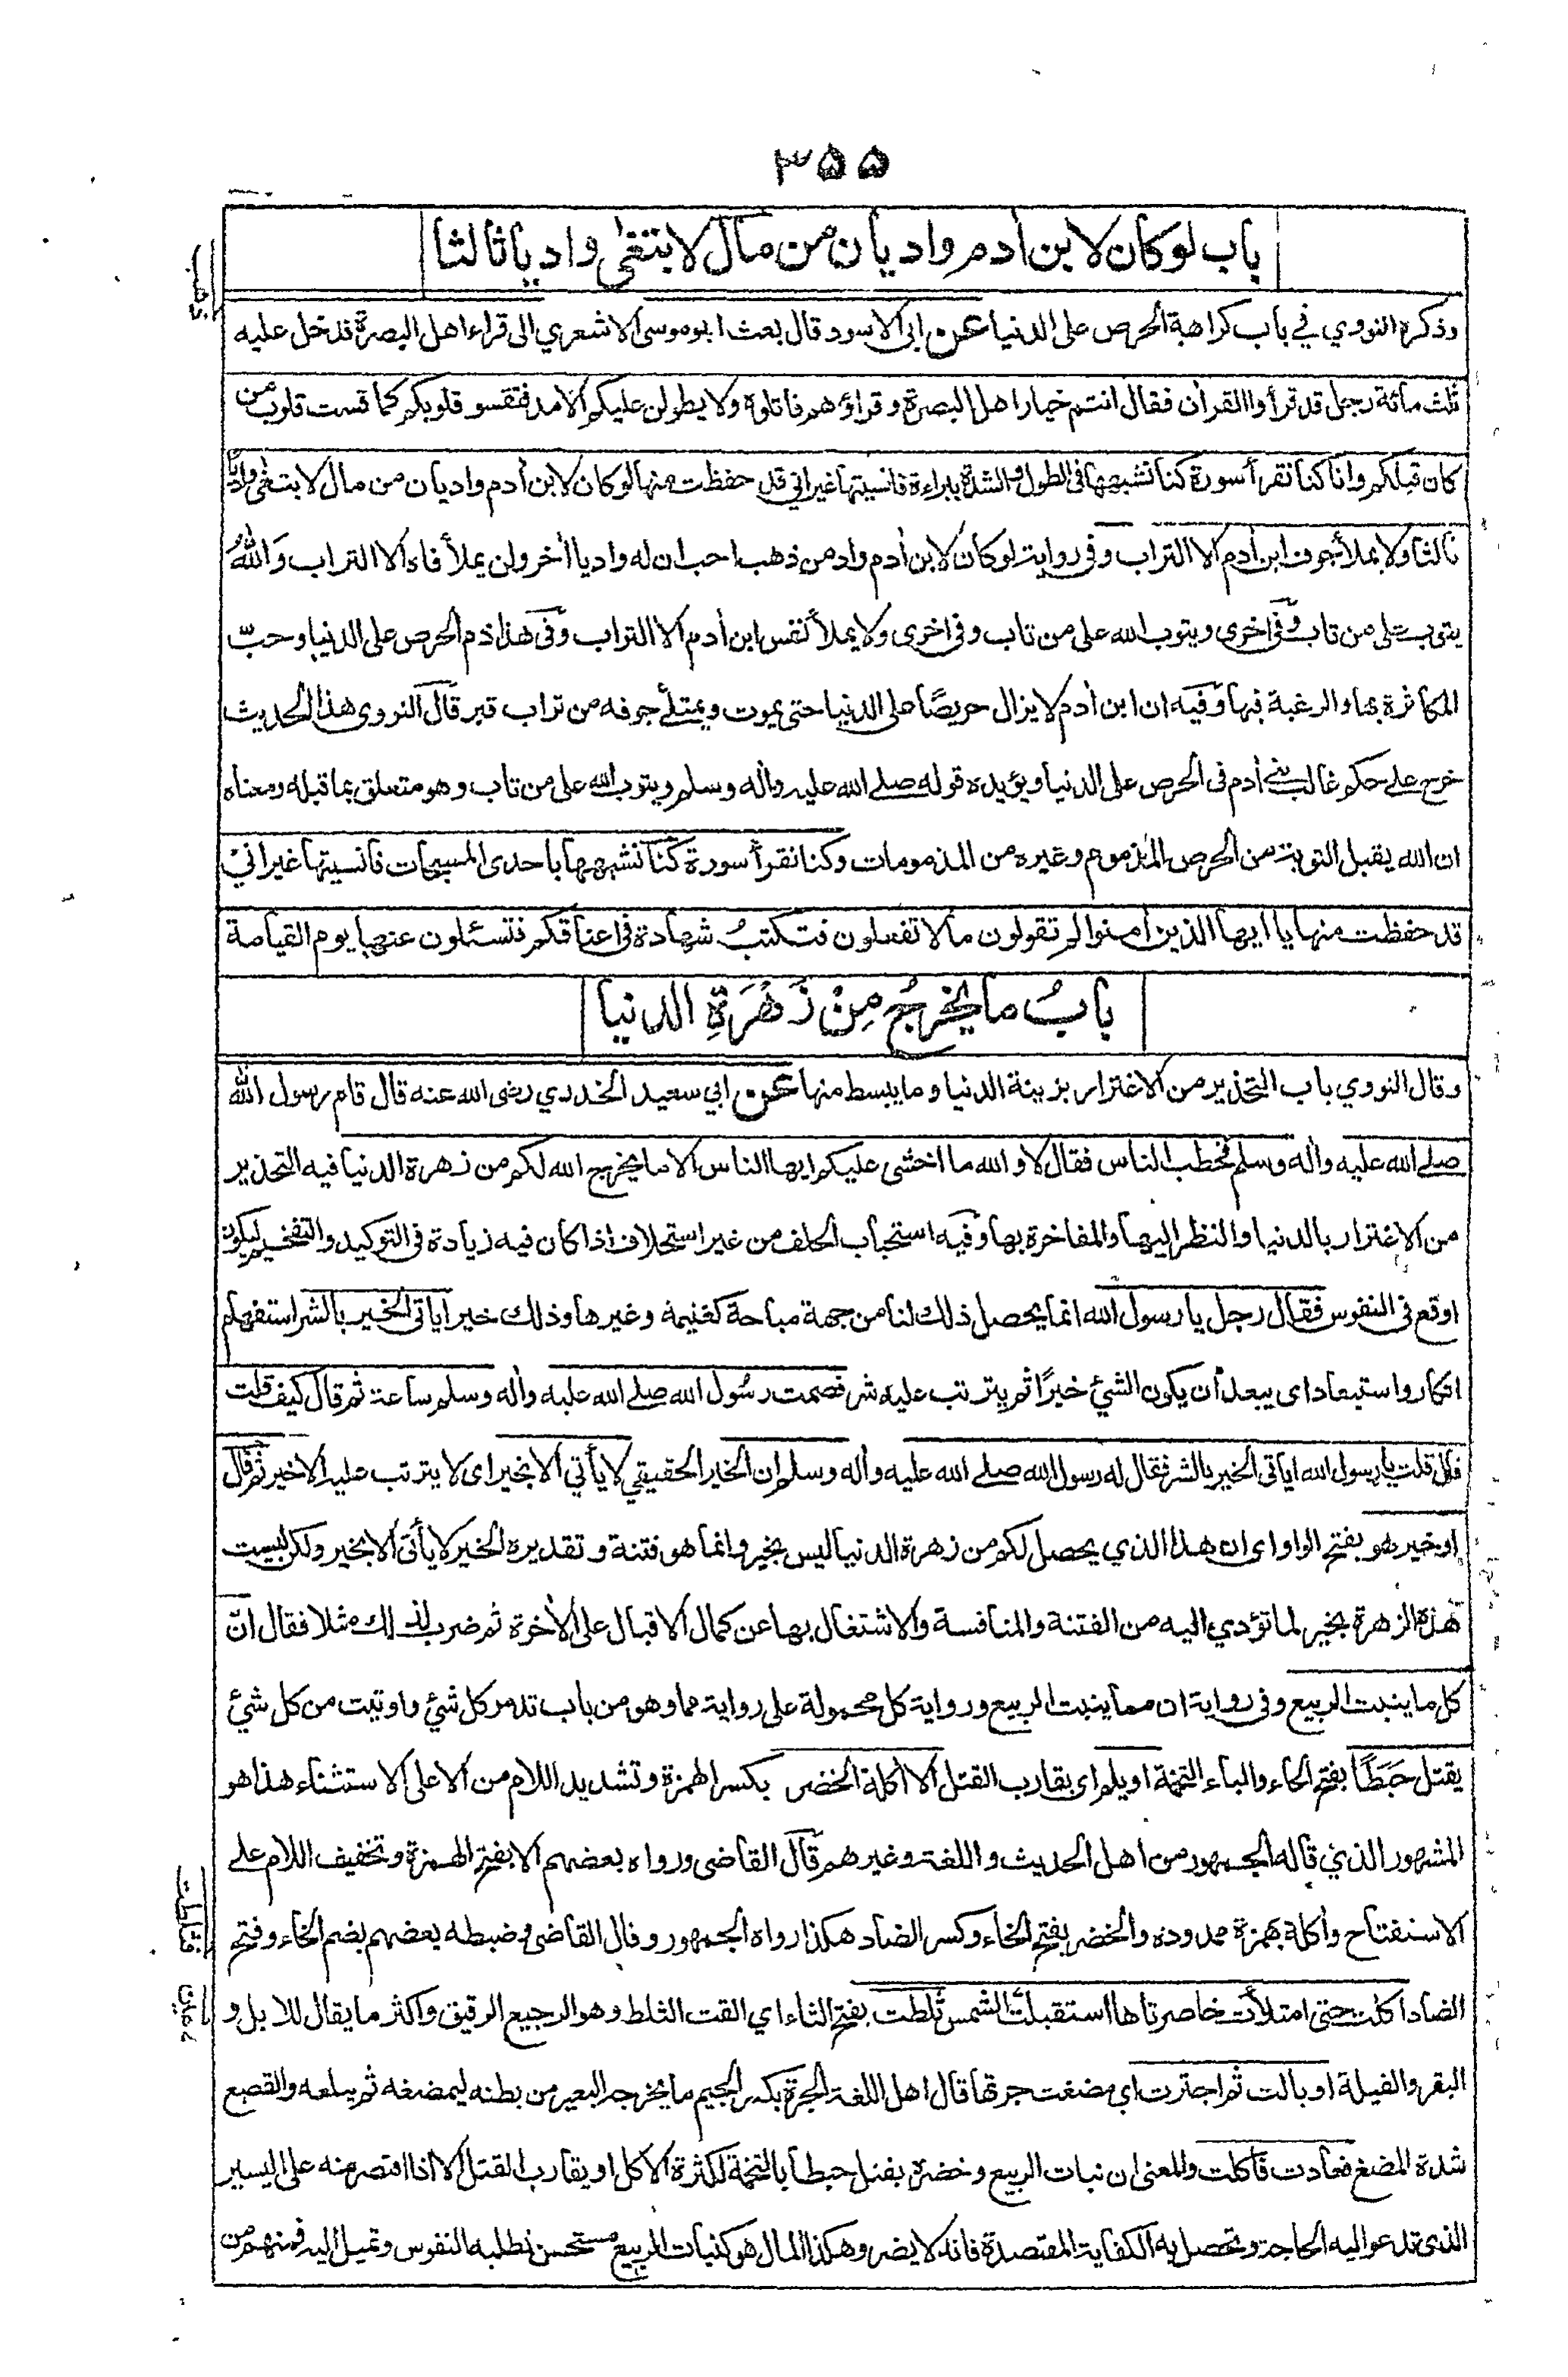 ٣٥٥
باب لو كان لابن أدم واديان من مال لابتغى واديا ثالثا
وذكره النووي في باب كراهة الحرص على الدنيا عن ابى الاسود قال بعث ابو موسى الاشعري الى قراء اهل البصرة فدخل عليه
ثلث مائة رجل قد قرأوا القرأن فقال انتم خيار اهل البصرة وقراؤهم فاتلوه ولا يطولن عليكم الامد فتقسو قلوبكم كما قست قلوب من
كان قبلكم وانا كنا نقرأ سورة كنا نشبهها فى الطول والشدة ببراءة فانسيتها غير اني قد حفظت منها لو كان لابن أدم واديان من مال لابتغى واديا
ثالثا ولا يملأ جوف ابن أدم الا التراب وفى رواية لو كان لابن أدم واد من ذهب احب ان له واديا أخر ولن يملأ فاه الا التراب والله
يتوب على من تاب وفى اخرى ويتوب الله على من تاب وفى اخرى ولا يملأ نفس ابن أدم الا التراب وفى هذا ذم الحرص على الدنيا وحبّ
المكاثرة بها والرغبة فيها وفيه ان ابن أدم لا يزال حريصًا على الدنيا حتى يموت ويمتلئ جوفه من تراب قبر قال النووي هذا الحديث
خرج على حكم غالب بني أدم فى الحرص على الدنيا ويؤيده قوله صلى الله عليه وأله وسلم ويتوب الله على من تاب وهو متعلق بما قبله ومعناه
ان الله يقبل التوبة من الحرص المذموم وغيره من المذمومات وكنا نقرأ سورة كنا نشبهها باحدى المسبحات فانسيتها غير اني
قد حفظت منها يا ايها الذين أمنوا لم تقولون ما لا تفعلون فتكتبُ شهادة فى اعناقكم فتسئلون عنها يوم القيامة
بابُ ما يخرجُ مِنْ زَهْرَةِ الدنيا
وقال النووي باب التحذير من الاغترار بزينة الدنيا وما يبسط منها عن ابي سعيد الخدري رضى الله عنه قال قام رسول الله
صلى الله عليه وأله وسلم فخطب الناس فقال لا والله ما اخشى عليكم ايها الناس الا ما يخرج الله لكم من زهرة الدنيا فيه التحذير
من الاغترار بالدنيا والنظر اليها والمفاخرة بها وفيه استحباب الحلف من غير استحلاف اذا كان فيه زيادة فى التوكيد والتفخيم ليكون
اوقع فى النفوس فقال رجل يا رسول الله انما يحصل ذلك لنا من جهة مباحة كغنيمة وغيرها وذلك خير اياتى الخير بالشر استفهام
انكار واستبعاد اى يبعد أن يكون الشيء خيرًا ثم يترتب عليه شر فصمت رسُول الله صلى الله عليه وأله وسلم ساعة ثم قال كيف قلت
قال قلت يا رسول الله اياتى الخير بالشر فقال له رسول الله صلى الله عليه وأله وسلم ان الخير الحقيقي لا يأتي الا بخير اى لا يترتب عليه الا خير ثم قال
او خير هو بفتح الواو اى ان هذا الذي يحصل لكم من زهرة الدنيا ليس بخير وانما هو فتنة وتقديره الخير لا يأتى الا بخير ولكن ليست
هذه الزهرة بخير لما تؤدي اليه من الفتنة والمنافسة والاشتغال بها عن كمال الاقبال على الأخرة ثم ضرب لذلك مثلا فقال انّ
كل ما ينبت الربيع وفى رواية ان مما ينبت الربيع ورواية كل محمولة على رواية مما وهو من باب تدمر كل شئ واوتيت من كل شئ
يقتل حَبَطًا بفتح الحاء والباء التخمة او يلم اى يقارب القتل الا أكلة الخضر بكسر الهمزة وتشديد اللام من الا على الاستثناء هذا هو
المشهور الذي قاله الجمهور من اهل الحديث واللغة وغيرهم قال القاضى ورواه بعضهم الا بفتح الهمزة وتخفيف اللام على
الاستفتاح وأكلة بهمزة ممدوده والخضر بفتح الخاء وكسر الضاد هكذا رواه الجمهور وقال القاضى وضبطه بعضهم بضم الخاء وفتح
الضاد اكلت حتى امتلأت خاصرتاها استقبلت الشمس ثلطت بفتح الثاء اي القت الثلط وهو الرجيع الرقيق واكثر ما يقال للابل و
البقر والفيلة او بالت ثم اجترت اى مضغت جرتها قال اهل اللغة الجرة بكسر الجيم ما يخرجه البعير من بطنه ليمضغه ثم يبلعه والقصع
شدة المضغ فعادت فأكلت والمعنى ان نبات الربيع وخضره يقتل حبطا بالتخمة لكثرة الاكل او يقارب القتل الا اذا اقتصر منه على اليسير
الذى تدعو اليه الحاجة وتحصل به الكفاية المقتصدة فانه لا يضر وهكذا المال هو كنبات الربيع مستحسن تطلبه النفوس وتميل اليه فمنهم من